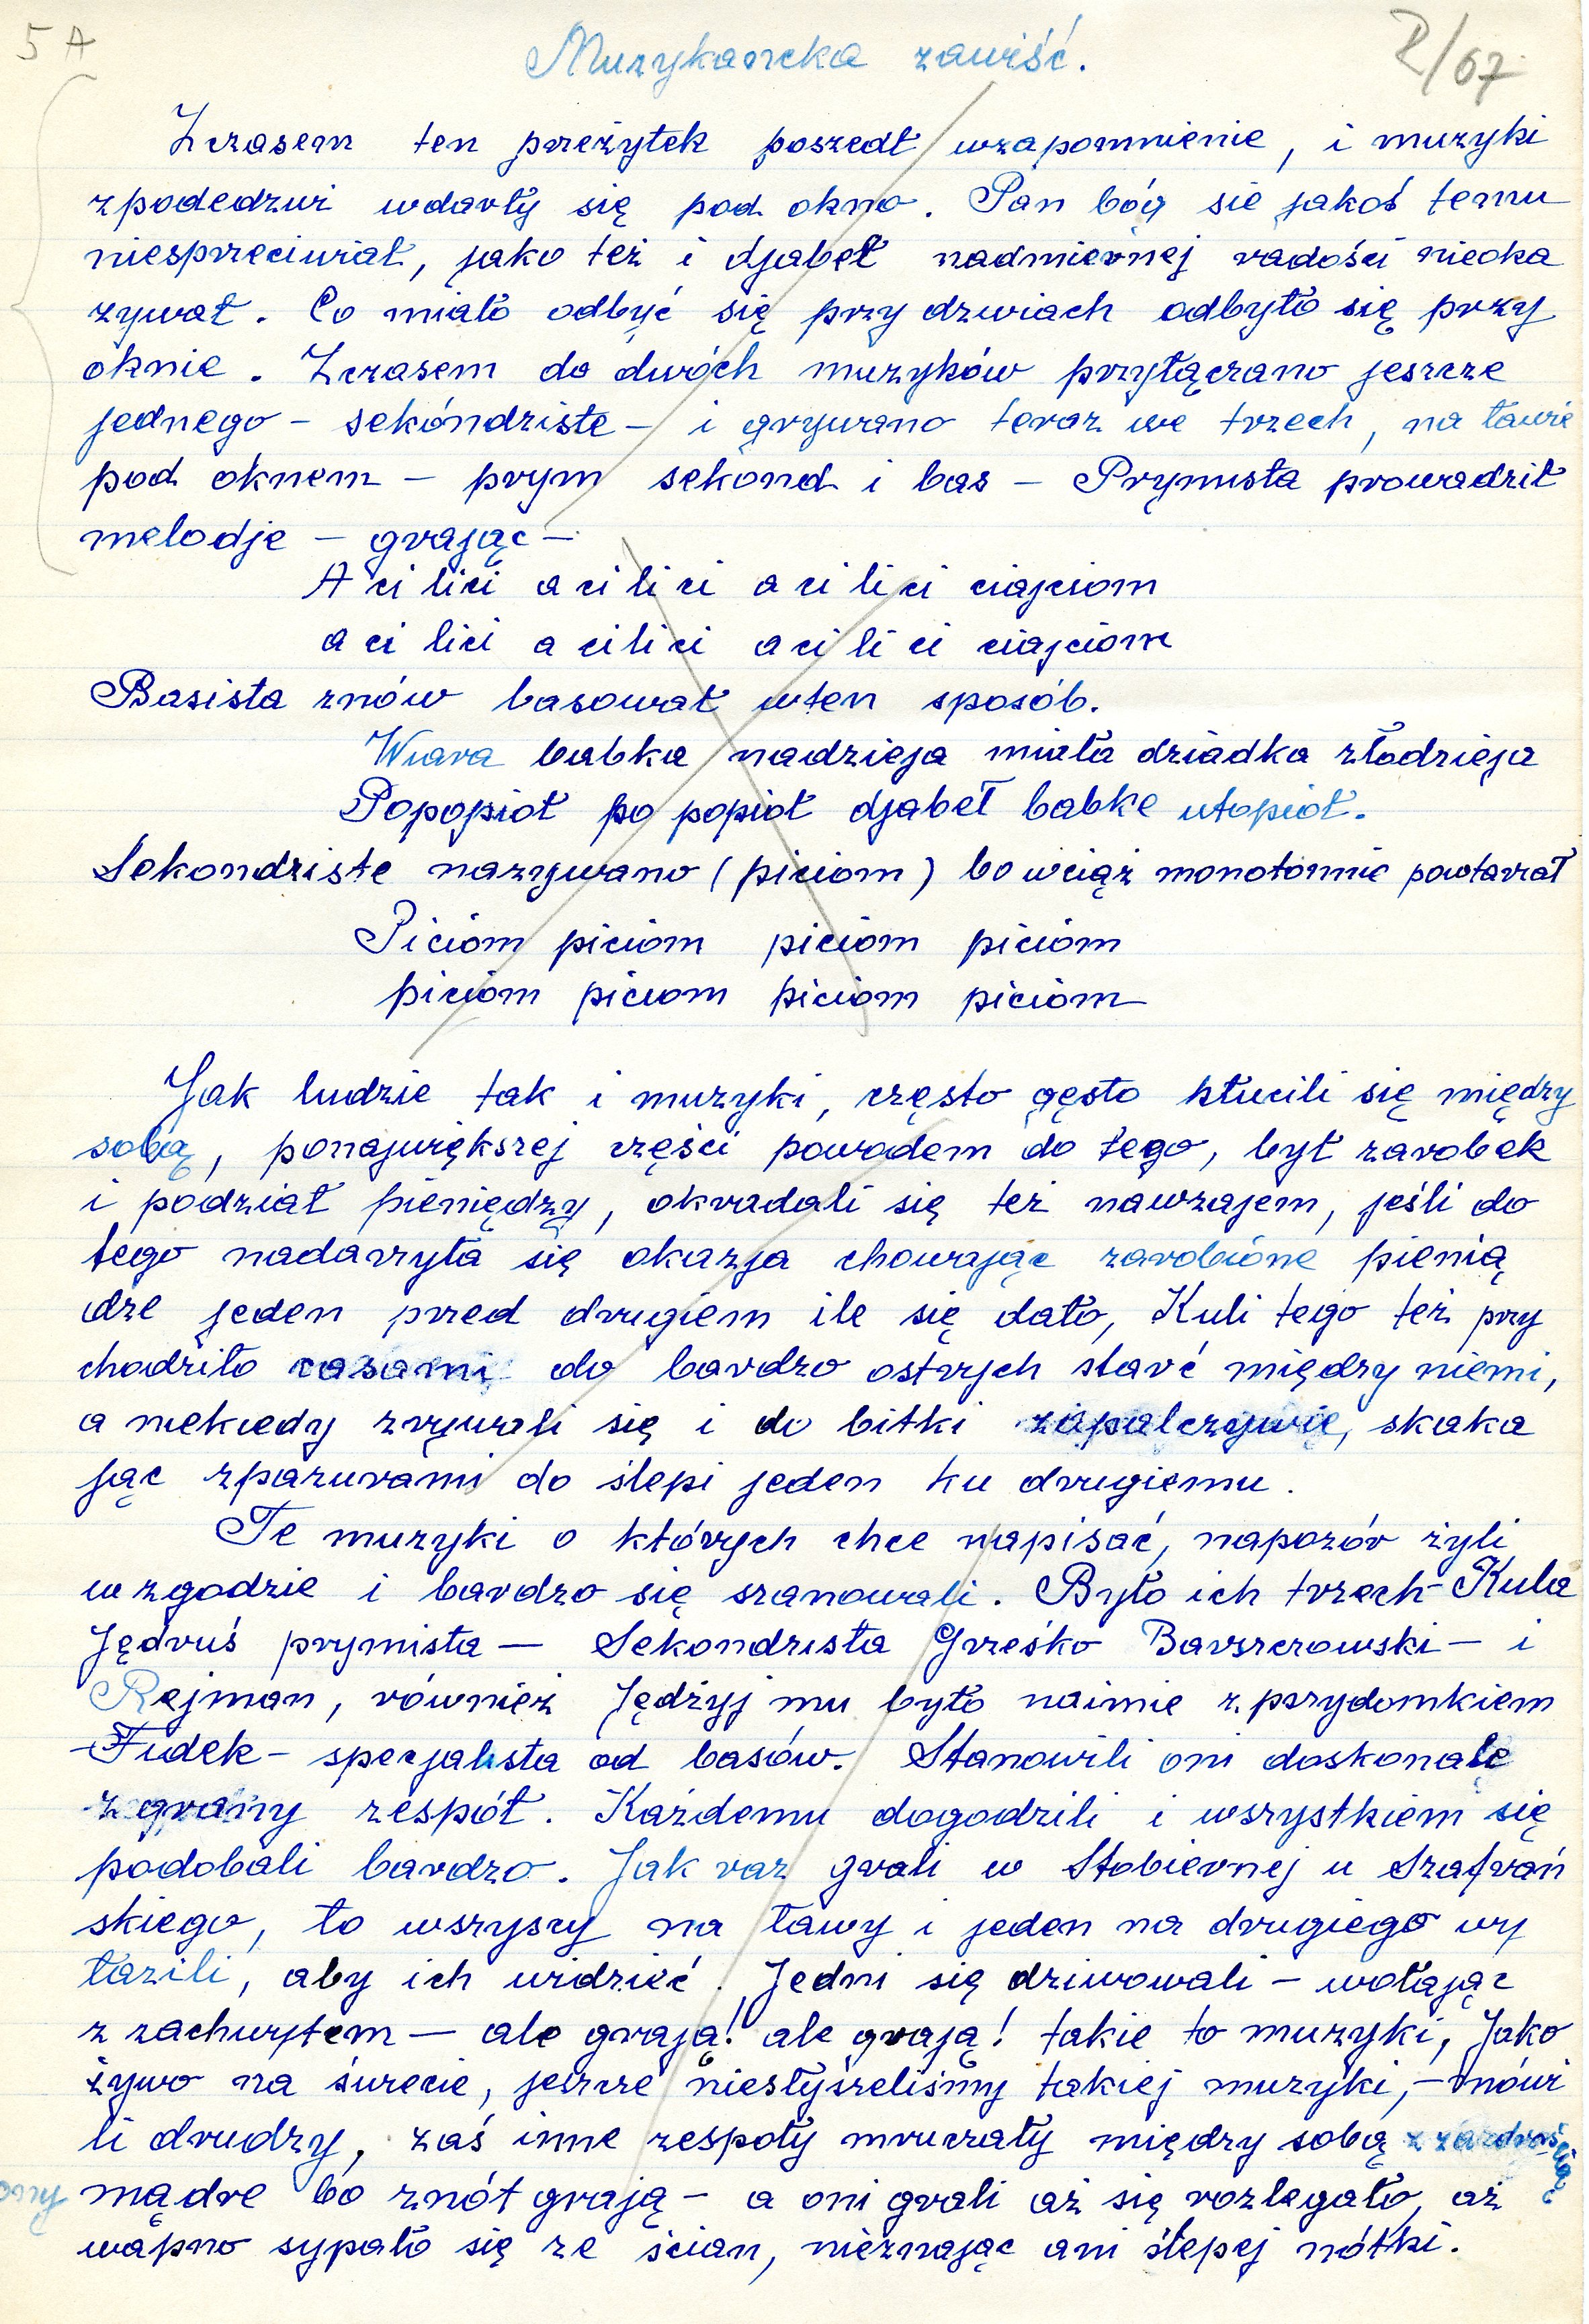 5 A
Muzykancka zawiść.
R/67
Zczasem ten przeżytek poszedł wzapomnienie, i muzyki
zpodedzwi wdarły się pod okno. Pan bóg sie jakoś temu
niesprzeciwiał, jako też i djabeł nadmiernej radości nieoka
zywał. Co miało odbyć się przy dzwiach odbyło się przy
oknie. Zczasem do dwóch muzyków przyłączano jeszcze
jednego – sekóndziste – i grywano teraz we trzech, na ławie
pod oknem – prym sekond i bas – Prymista prowadził
melodje – grając –
A ci lici a ci li ci a ci li ci ciajciom
a ci lici a ci li ci a ci li ci ciajciom
Basista znów basował wten sposób.
Wiara babka nadzieja miała dziadka złodzieja
Popopioł po popiół djabeł babke utopioł.
Sekondziste nazywano (piciom) bo wciąż monotonnie powtarzał
Piciom piciom piciom piciom
piciom piciom piciom piciom
Jak ludzie tak i muzyki, często gęsto kłucili się między
sobą, ponajwiększej części powodem do tego, był zarobek
i podział pieniędzy, okradali się też nawzajem, jeśli do
tego nadarzyła się okazja chowając zarobione pienią
dze jeden przed drugiem ile się dało, Kuli tego też przy
chodziło casami do bardzo ostrych starć między niemi,
a niekiedy zrywali się i do bitki zapalczywie, skaka
jąc zpazurami do ślepi jeden ku drugiemu.
Te muzyki o których chce napisać, napozór żyli
w zgodzie i bardzo się szanowali. Było ich trzech – Kula
Jędruś prymista – Sekondzista Grześko Barszczowski – i
Rejman, również Jędżyj mu było naimie z przydomkiem
– Fudek – specjalista od basów. Stanowili oni doskonale
zgrany zespół. Każdemu dogodzili i wszystkiem się
podobali bardzo. Jak raz grali w Stobiernej u Szafrań
skiego, to wszyscy na ławy i jeden na drugiego wy
łazili, aby ich widzieć. Jedni się dziwowali – wołając
z zachwytem – ale grają! ale grają! takie to muzyki, Jako
żywo na świecie, jeszcze niesłyszeliśmy takiej muzyki, – mówi
li drudzy, zaś inne zespoły mruczały między sobą z zazdrością
ony mądre bo znót grają – a oni grali aż się rozlegało, aż
wapno sypało się ze ścian, nieznając ani ślepej nótki.